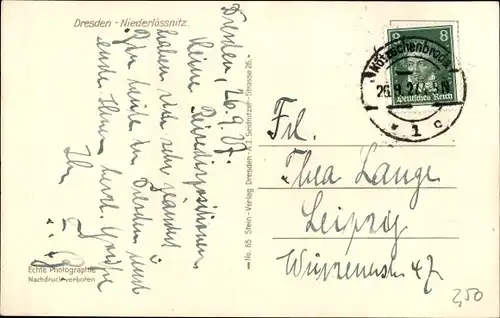 Dresden - Niederlössnitz.
Dresden, 26.9.27.
Meine Reisedispositionen
haben sich sehr geändert
Bin heute in Dresden und
sende Ihnen herzl. Grüße
Ihr
Echte Photographie
Nachdruck verboten
No. 65 Stein-Verlag Dresden-A.1. Seidnitzer-Strasse 26.
Kötzschenbroda
26.9.27.
* 1 c
8
Deutsches Reich
Frl.
Thea Lange
Leipzig
Wurzenerstr. 47
2,50